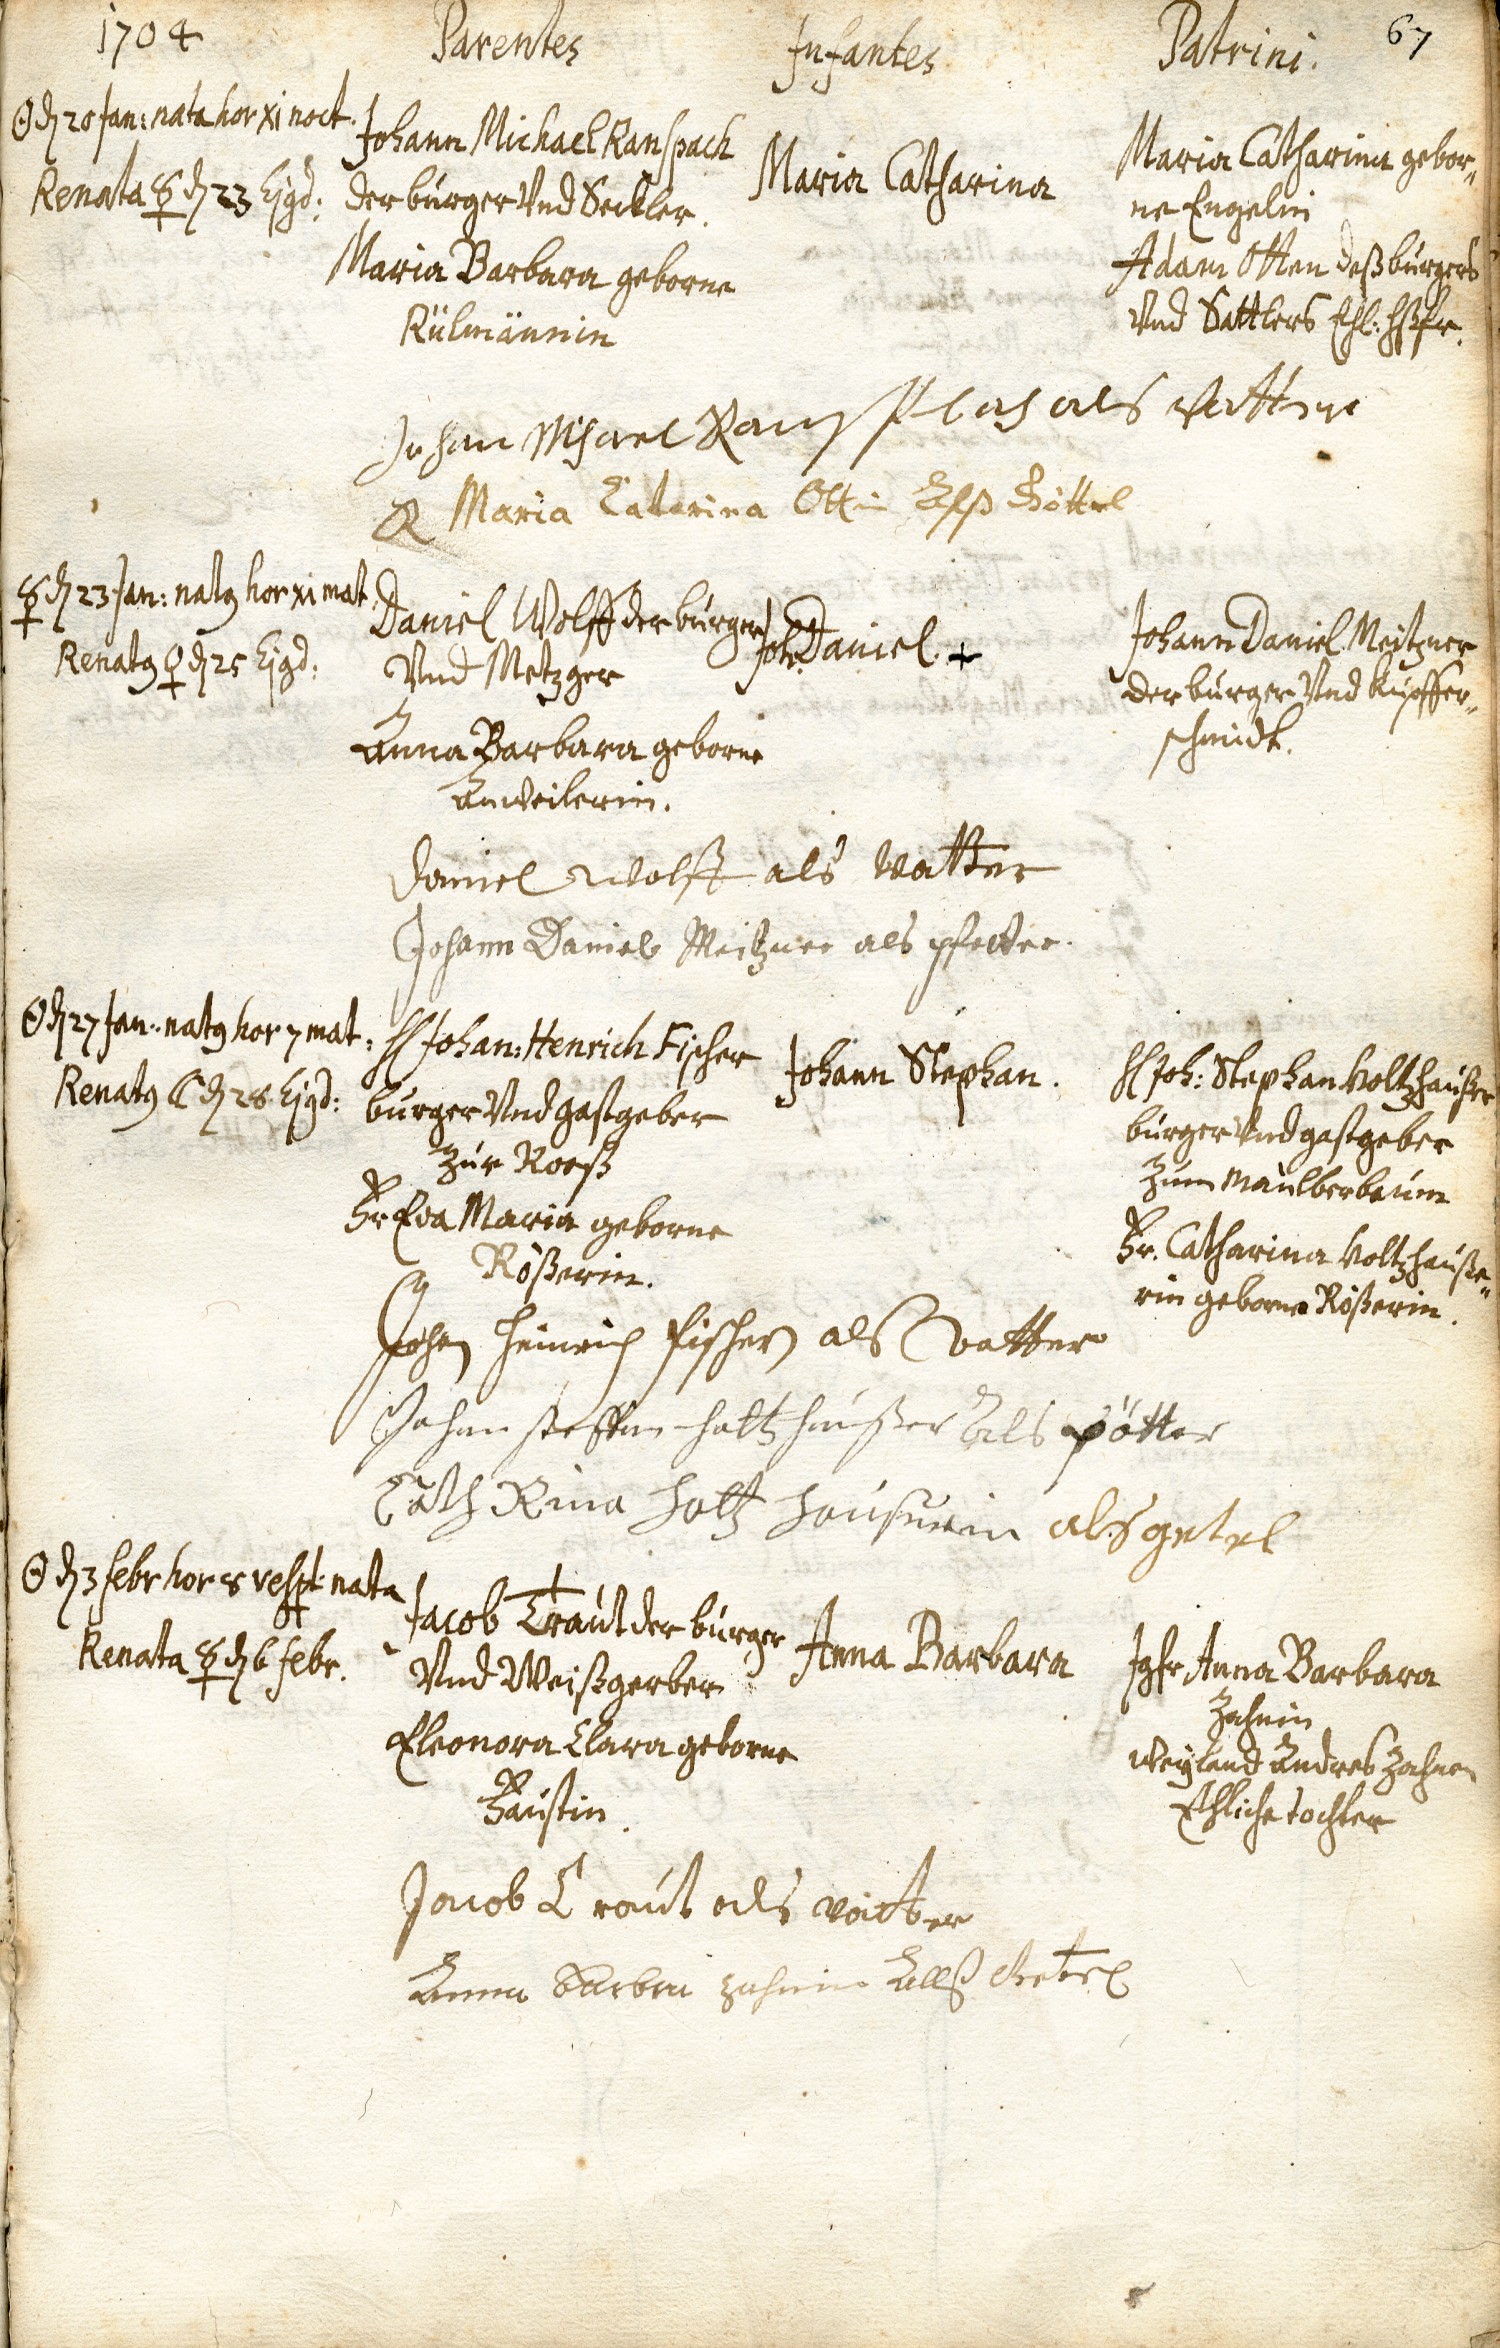 1704 Parentes Infantes Patrini. 67
☉ d 20 Jan: nata hor xi noct.
Renata ☿ d 23 Ejsd:
Johann Michael Ranspach
der burger Vnd Seckler.
Maria Barbara geborne
Külmännin
Maria Catharina
Maria Catharina gebor„
ne Engelin
Adam Otten deß burgers
Vnd Sattlers Ehl: Hßfr.
Johan Michael als Vatter
Maria Catarina Ottin Alß Göttel
☿ d 23 Jan: natg hor xi mat.
Renatg ♀ d 25 Ejsd:
Daniel Wolff der burger
Vnd Metzger
Anna Barbara geborne
Anweilerin.
Joh: Daniel +
Johann Daniel Meitzner
der burger Vnd Kupffer„
schmidt.
Daniel Wolff als Vatter
Johann Daniel Meitzner als pfetter.
☉ d 27 Jan: natg hor 7 mat:
Renatg ☾ d 28 Ejsd:
H Johan: Henrich Fischer
burger Vnd gastgeber
zur Rooß
Fr Eva Maria geborne
Rößerin.
Johann Stephan.
H Joh: Stephan Holtzhaußer
burger Vnd gastgeber
Zum Maulberbaum
Fr. Catharina Holtzhauße„
rin geborne Rößerin.
Johan Heinrich fischer als Vatter
Johan steffan holtzhaußer Als pötter
CathRina Holtz Hausuerin als getel
☉ d 3 febr hor 8 vespt: nata
Renata ☿ d 6 febr.
Jacob Traut der burger
Vnd Weißgerber
Eleonora Clara geborne
Faustin.
Anna Barbara
Jgfr Anna Barbara
Zahnin
Weyland Andres Zahnen
Ehliche tochter
Jacob Traut als Vatter
Anna Barbra zahnin Alß Getel